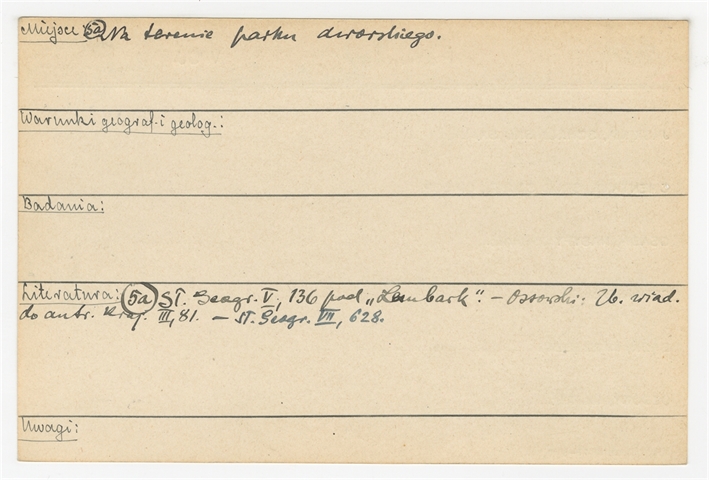 Miejsce: (5a) Na terenie parku dworskiego.
Warunki geograf. i geolog.:
Badania:
Literatura: (5a) Sł. Geogr. V, 136 pod „Lembark". – Ossowski: Zb. wiad.
do antr. kraj. III, 81. – Sł. Geogr. VII, 628.
Uwagi: